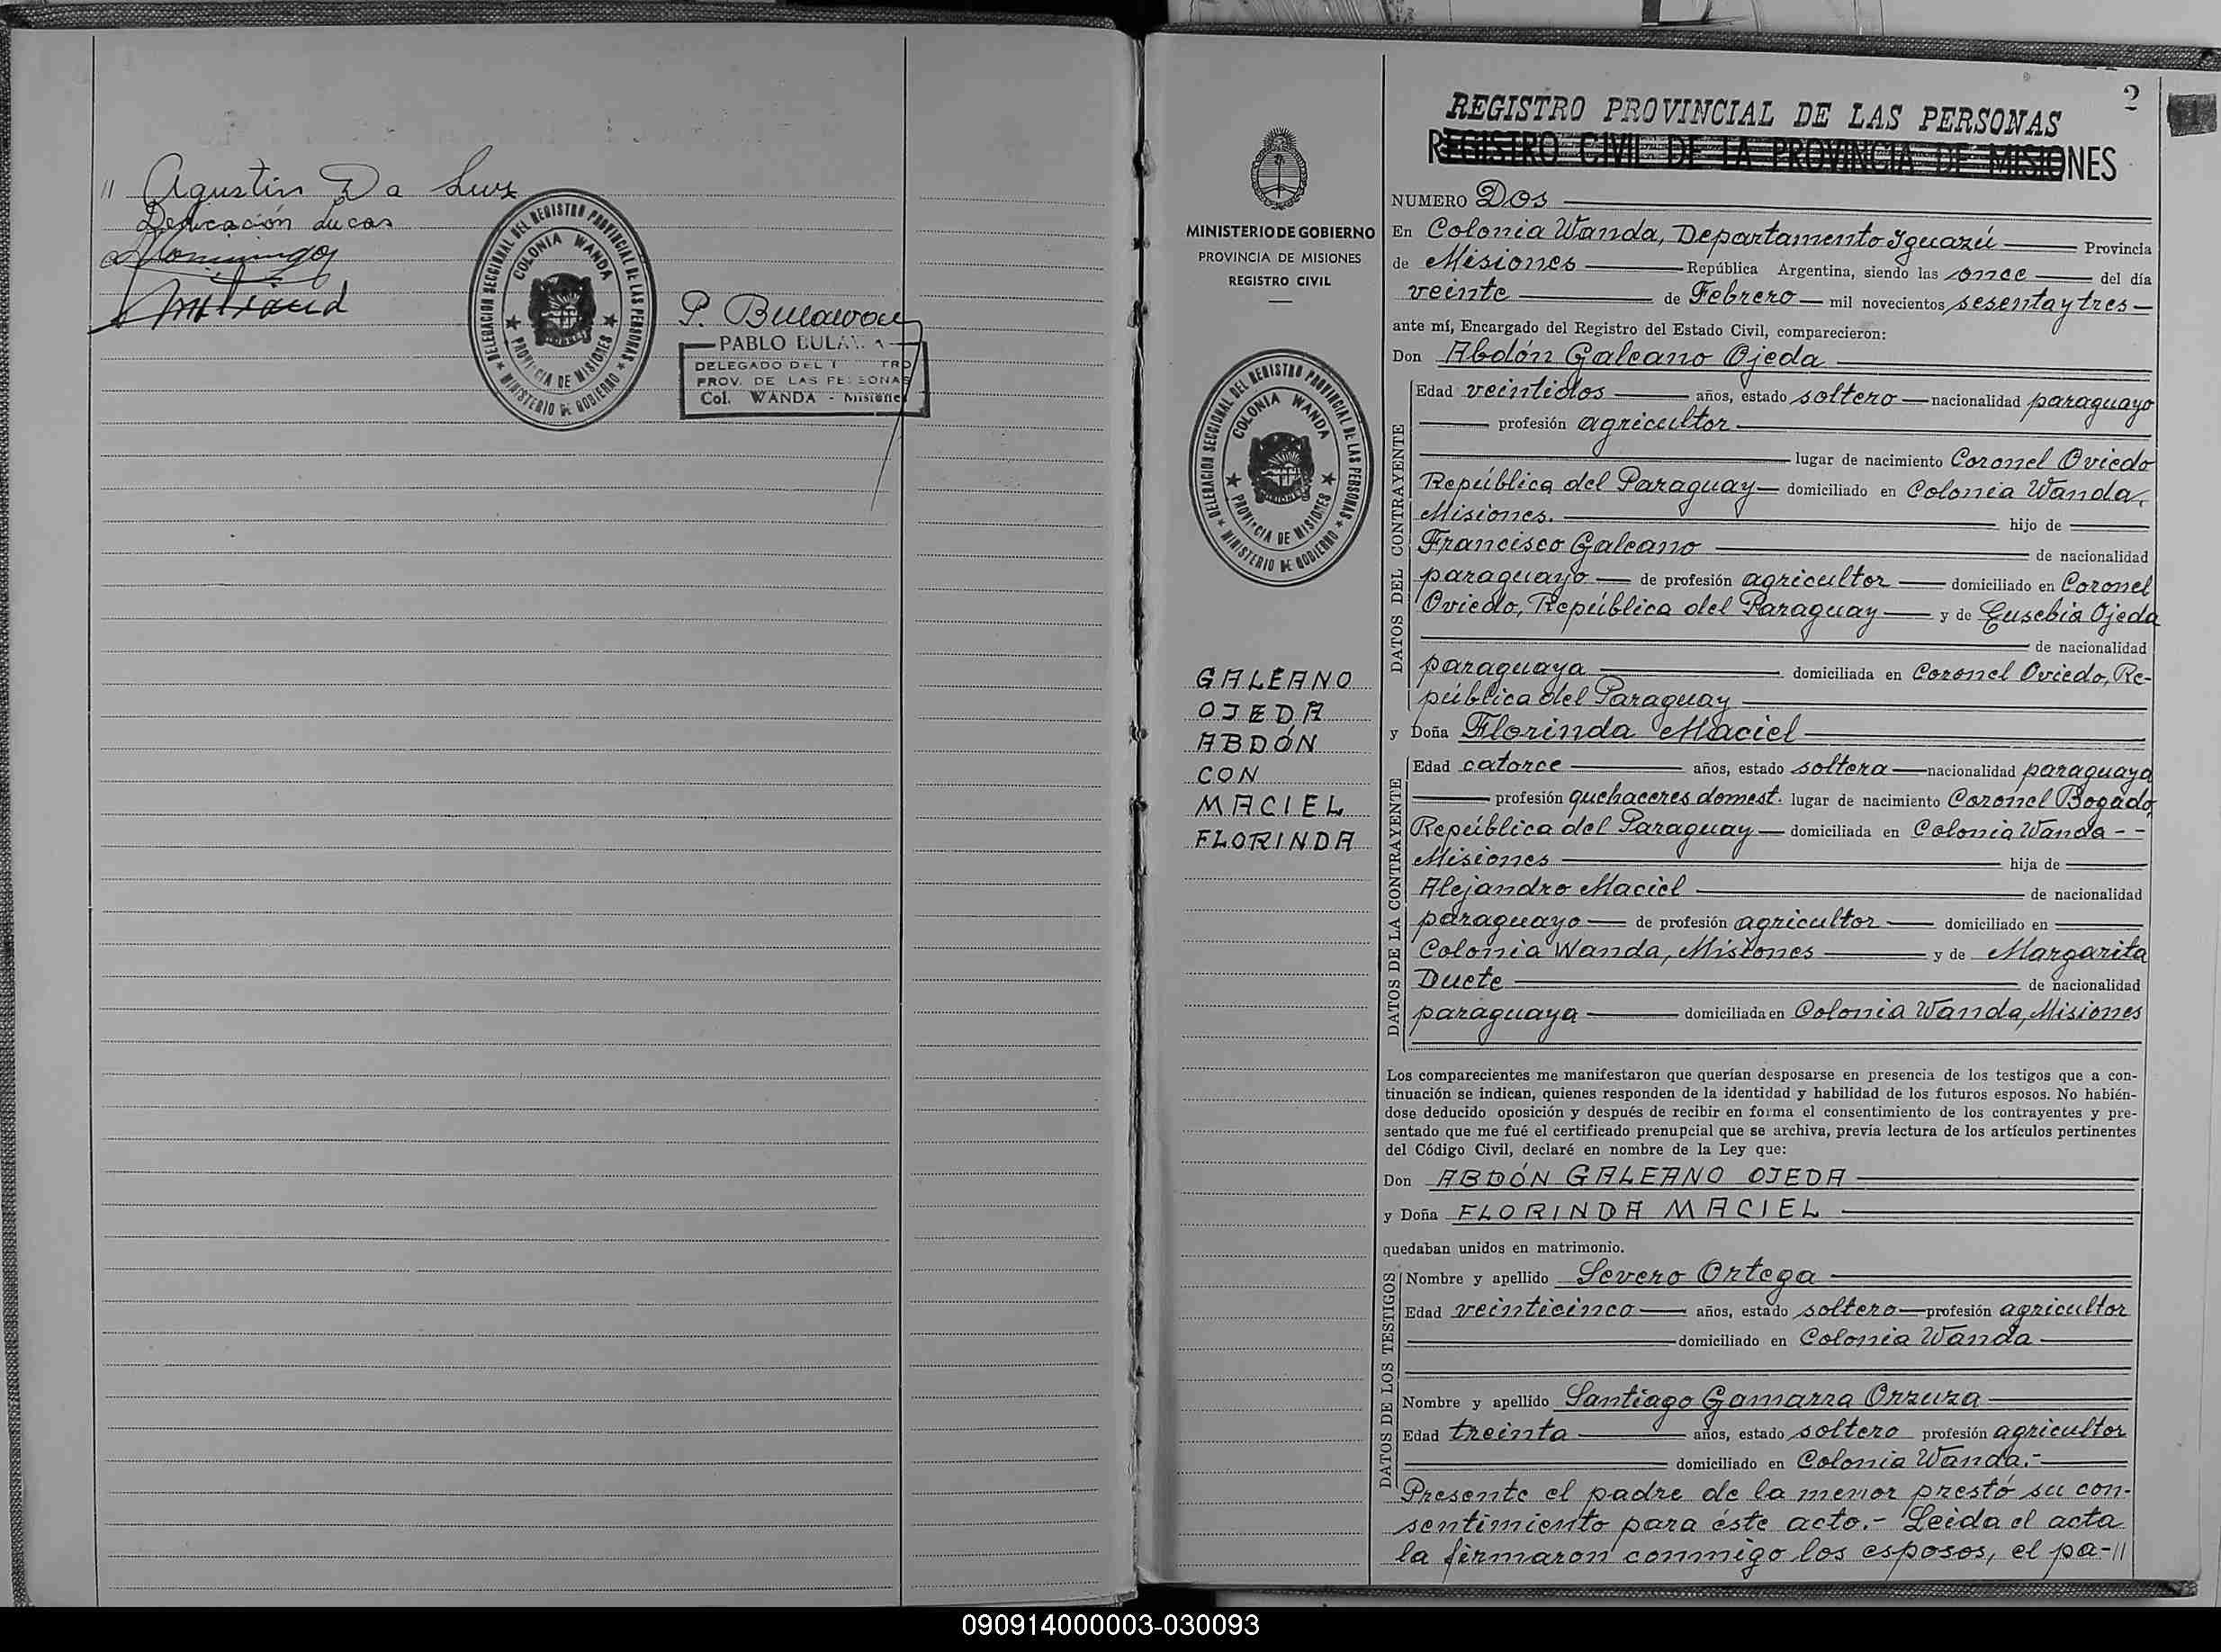 // Agustin Da Luz
DELEGACION SECCIONAL DEL REGISTRO PROVINCIAL DE LAS PERSONAS
COLONIA WANDA
PROVINCIA DE MISIONES
MINISTERIO DE GOBIERNO
P. Bulawou
PABLO BULA
DELEGADO DEL TRO
PROV. DE LAS PERSONAS
Col. WANDA - Misiones
2
1
REGISTRO PROVINCIAL DE LAS PERSONAS
REGISTRO CIVIL DE LA PROVINCIA DE MISIONES
MINISTERIO DE GOBIERNO
PROVINCIA DE MISIONES
REGISTRO CIVIL
DELEGACION SECCIONAL DEL REGISTRO PROVINCIAL DE LAS PERSONAS
COLONIA WANDA
PROVINCIA DE MISIONES
MINISTERIO DE GOBIERNO
GALEANO
OJEDA
ABDÓN
CON
MACIEL
FLORINDA
NUMERO Dos
En Colonia Wanda, Departamento Iguazú Provincia
de Misiones República Argentina, siendo las once del día
veinte de Febrero mil novecientos sesenta y tres
ante mí, Encargado del Registro del Estado Civil, comparecieron:
Don Abdón Galeano Ojeda
DATOS DEL CONTRAYENTE
Edad veintidos años, estado soltero nacionalidad paraguayo
profesión agricultor
lugar de nacimiento Coronel Oviedo
República del Paraguay domiciliado en Colonia Wanda,
Misiones. hijo de
Francisco Galeano de nacionalidad
paraguayo de profesión agricultor domiciliado en Coronel
Oviedo, República del Paraguay y de Eusebia Ojeda
de nacionalidad
paraguaya domiciliada en Coronel Oviedo, Re-
pública del Paraguay
y Doña Florinda Maciel
DATOS DE LA CONTRAYENTE
Edad catorce años, estado soltera nacionalidad paraguaya
profesión quehaceres domest. lugar de nacimiento Coronel Bogado,
República del Paraguay domiciliada en Colonia Wanda - -
Misiones hija de
Alejandro Maciel de nacionalidad
paraguayo de profesión agricultor domiciliado en
Colonia Wanda, Misiones y de Margarita
Duete de nacionalidad
paraguaya domiciliada en Colonia Wanda, Misiones
Los comparecientes me manifestaron que querían desposarse en presencia de los testigos que a con-
tinuación se indican, quienes responden de la identidad y habilidad de los futuros esposos. No habién-
dose deducido oposición y después de recibir en forma el consentimiento de los contrayentes y pre-
sentado que me fué el certificado prenupcial que se archiva, previa lectura de los artículos pertinentes
del Código Civil, declaré en nombre de la Ley que:
Don ABDÓN GALEANO OJEDA
y Doña FLORINDA MACIEL
quedaban unidos en matrimonio.
DATOS DE LOS TESTIGOS
Nombre y apellido Severo Ortega
Edad veinticinco años, estado soltero profesión agricultor
domiciliado en Colonia Wanda
Nombre y apellido Santiago Gamarra Orzuza
Edad treinta años, estado soltero profesión agricultor
domiciliado en Colonia Wanda.-
Presente el padre de la menor prestó su con-
sentimiento para éste acto.- Leida el acta
la firmaron conmigo los esposos, el pa-//
090914000003-030093